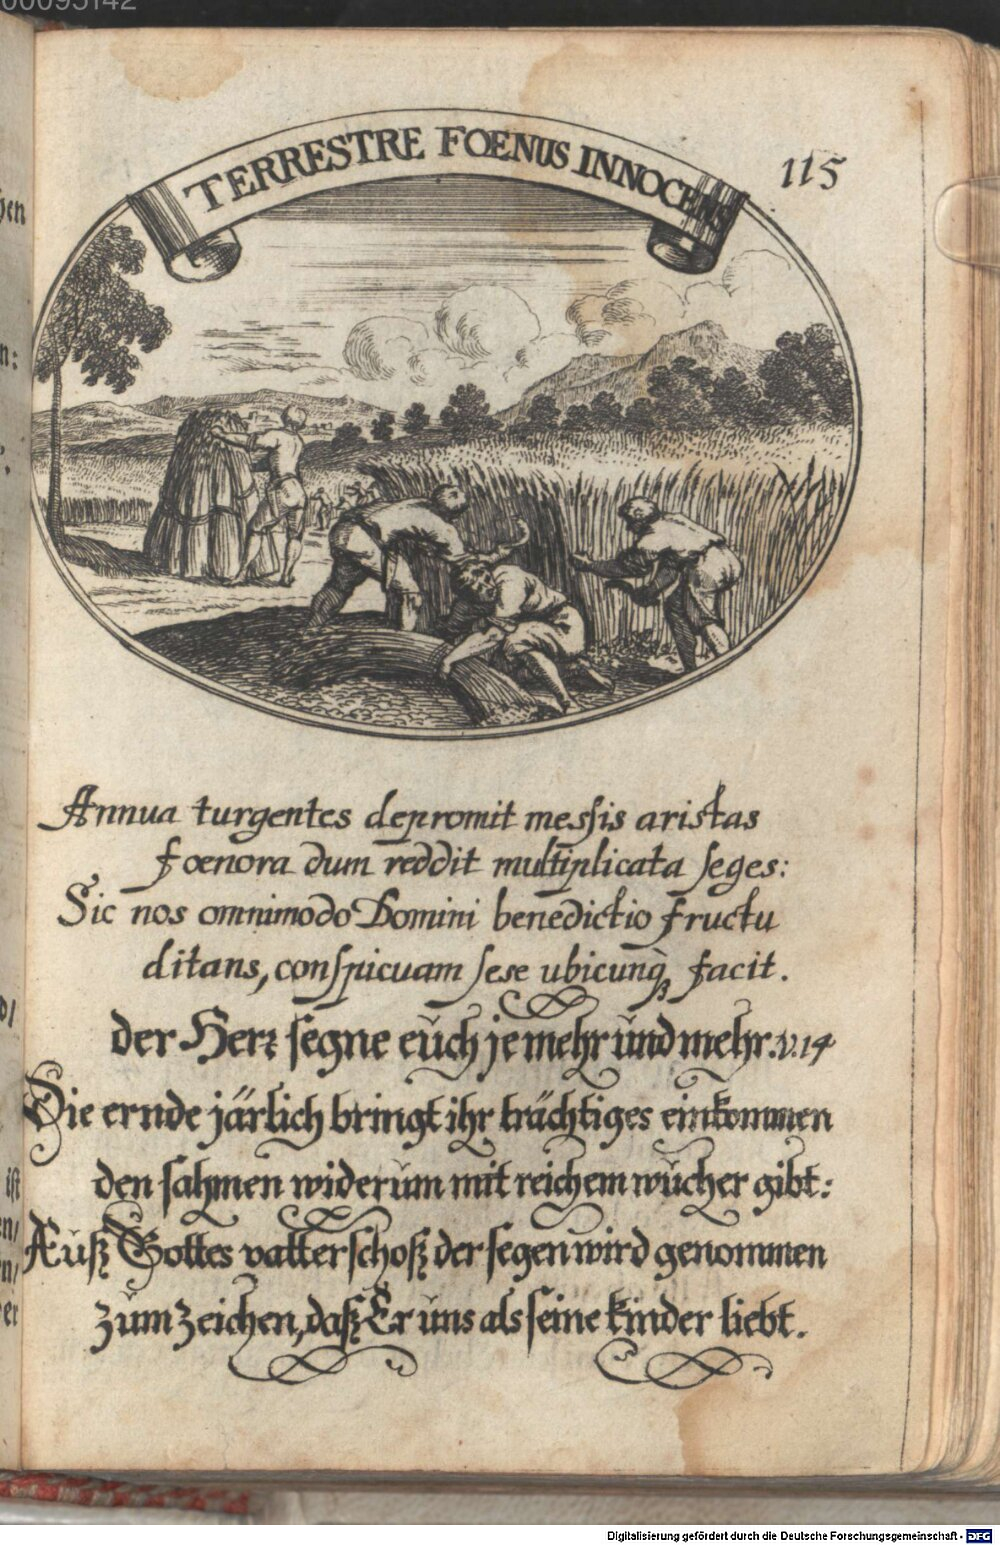 00095142
TERRESTRE FOENUS INNOCENS
115
Annua turgentes depromit messis aristas
foenora dum reddit multiplicata seges:
Sic nos omnimodo Domini benedictio fructu
ditans, conspicuam sese ubicunq; facit.
der Herr segne euch je mehr und mehr. v. 14
Die ernde järlich bringt ihr trächtiges einkommen
den sahmen widerum mit reichem wucher gibt:
Auß Gottes vatterschoß der segen wird genommen
zum zeichen, daß Er uns als seine kinder liebt.
Digitalisierung gefördert durch die Deutsche Forschungsgemeinschaft - DFG